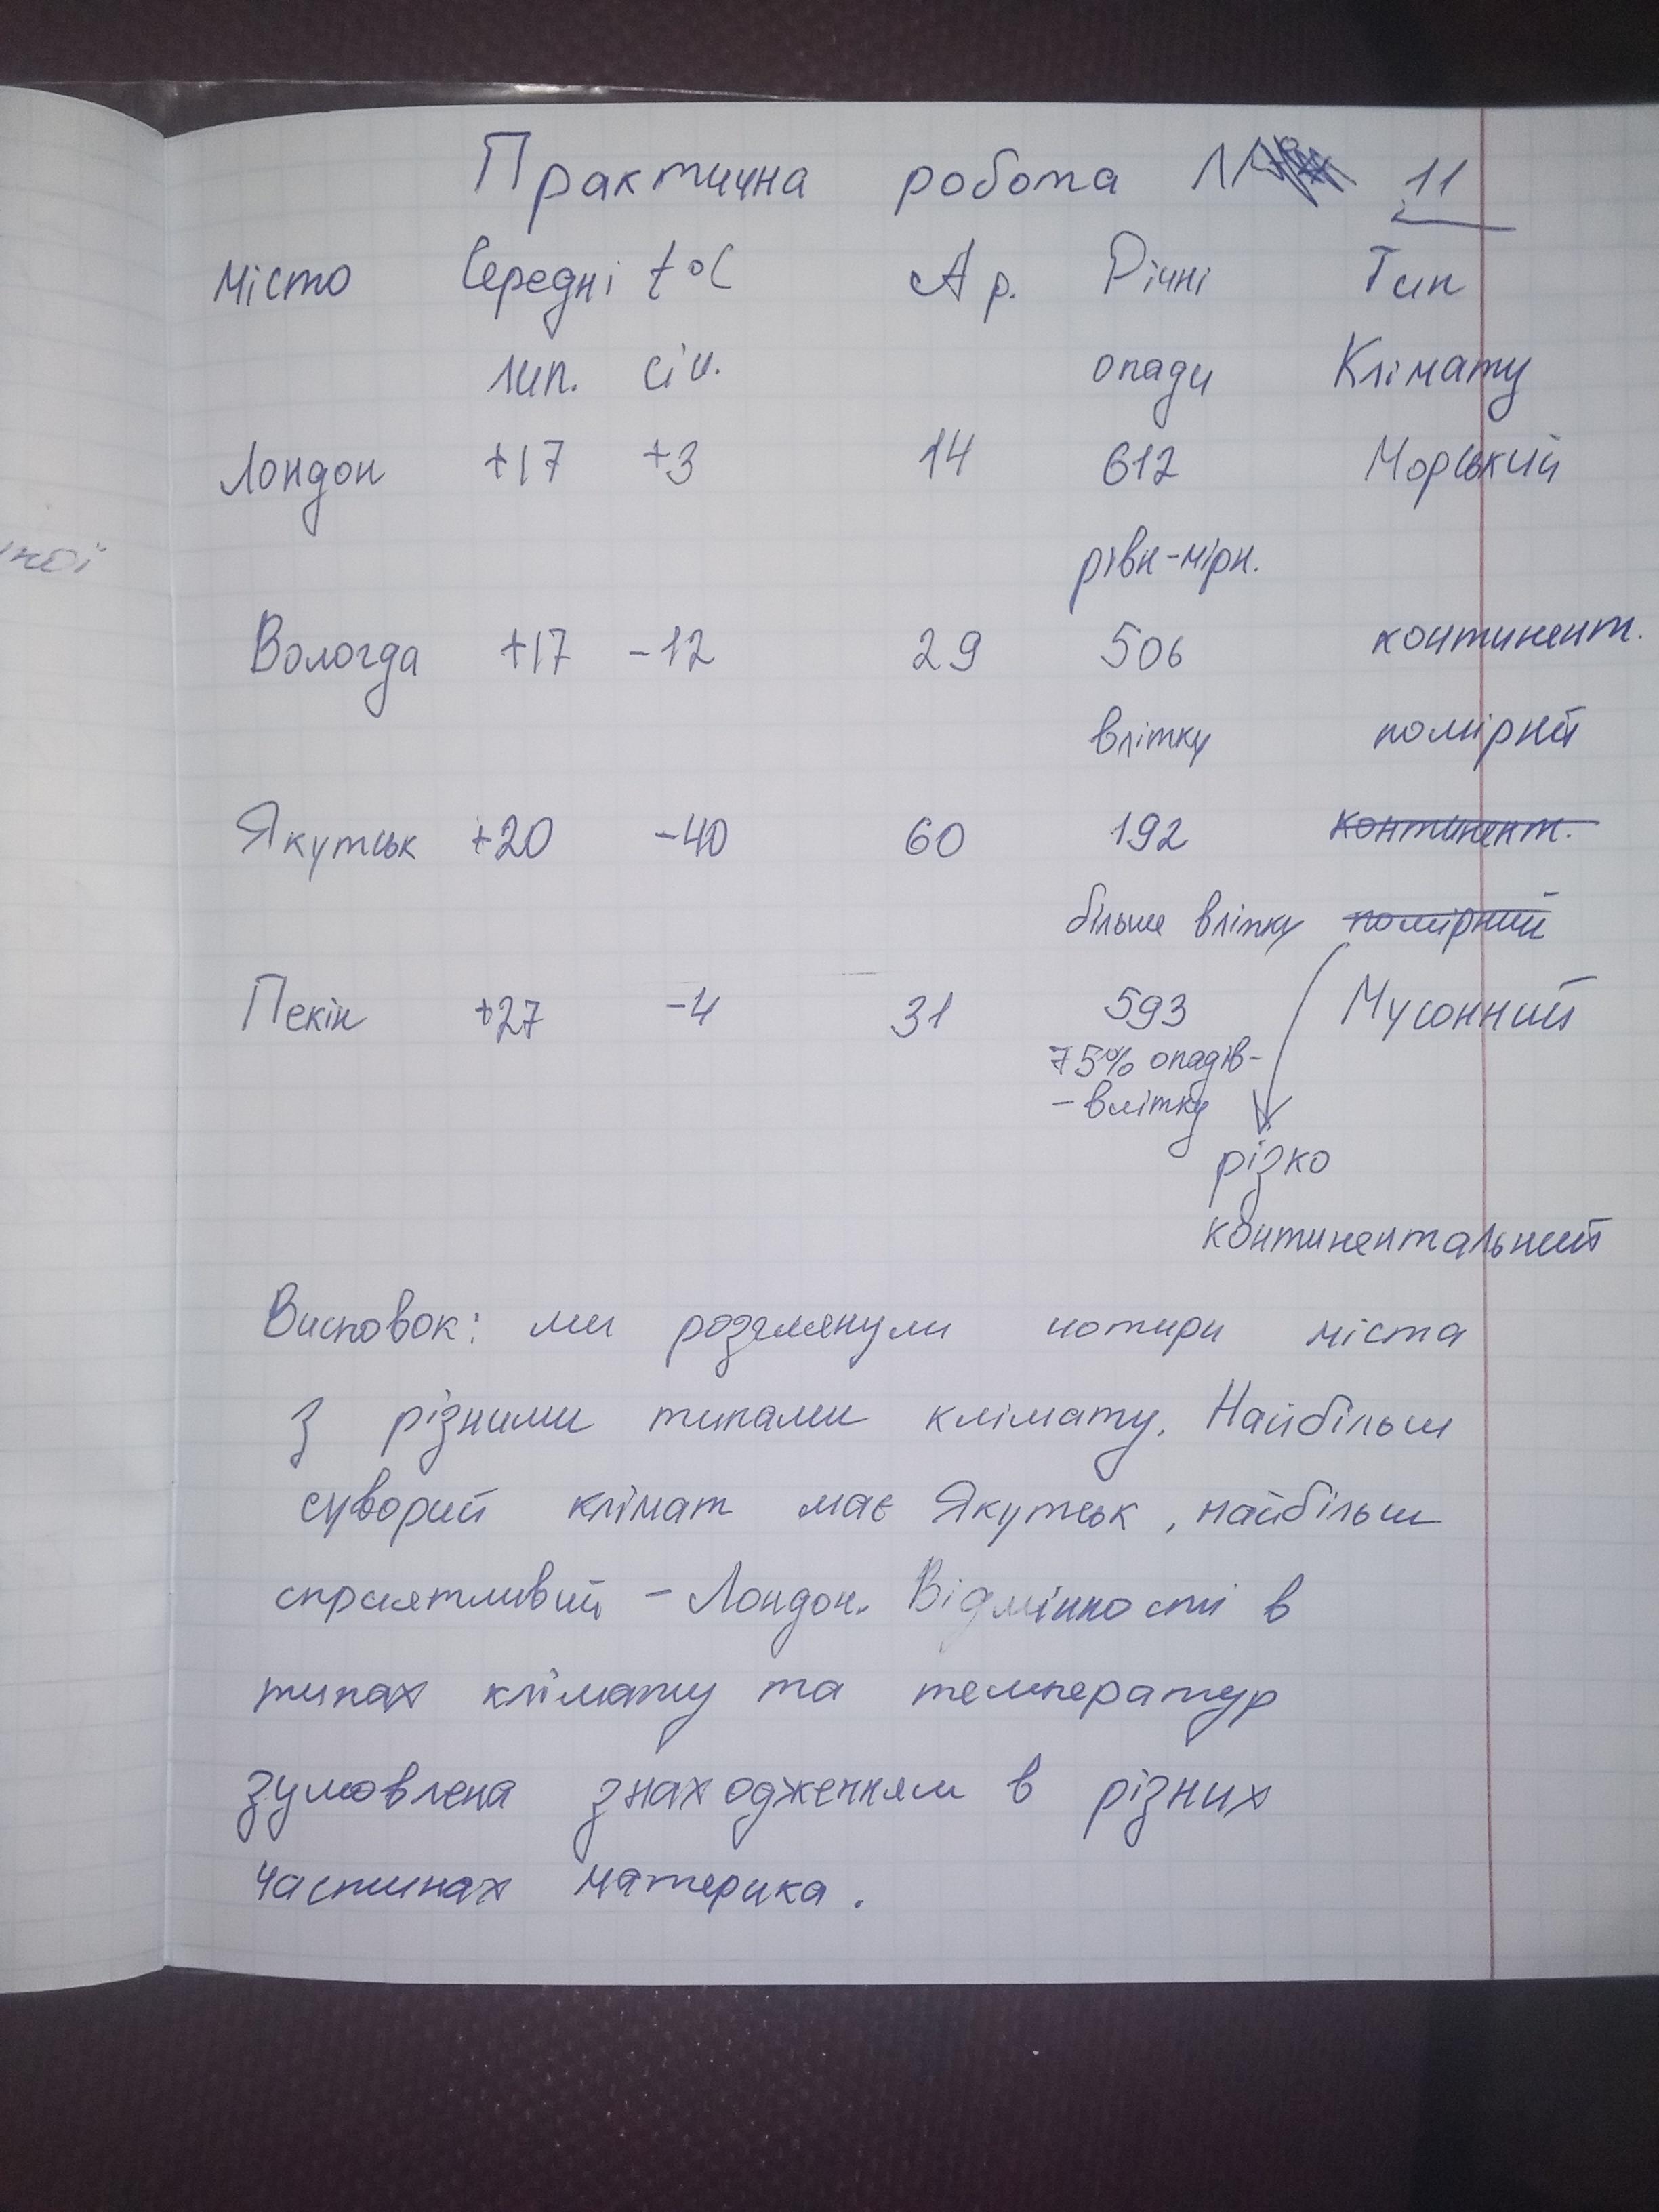 Практична робота 11
місто Середні t°C А р. Річні Тип
лип. січ. опади Клімату
Лондон +17 +3 14 612 Морський
рівн-мірн.
Вологда +17 -12 29 506 континент.
влітку помірний
Якутськ +20 -40 60 192 континент.
більше влітку помірний
Пекін +27 -4 31 593 Мусонний
75% опадів-
-влітку
різко
континентальний
Висновок: ми розглянули чотири міста
з різними типами клімату. Найбільш
суворий клімат має Якутськ, найбільш
сприятливий - Лондон. Відмінності в
типах клімату та температур
зумовлена знаходженням в різних
частинах материка.